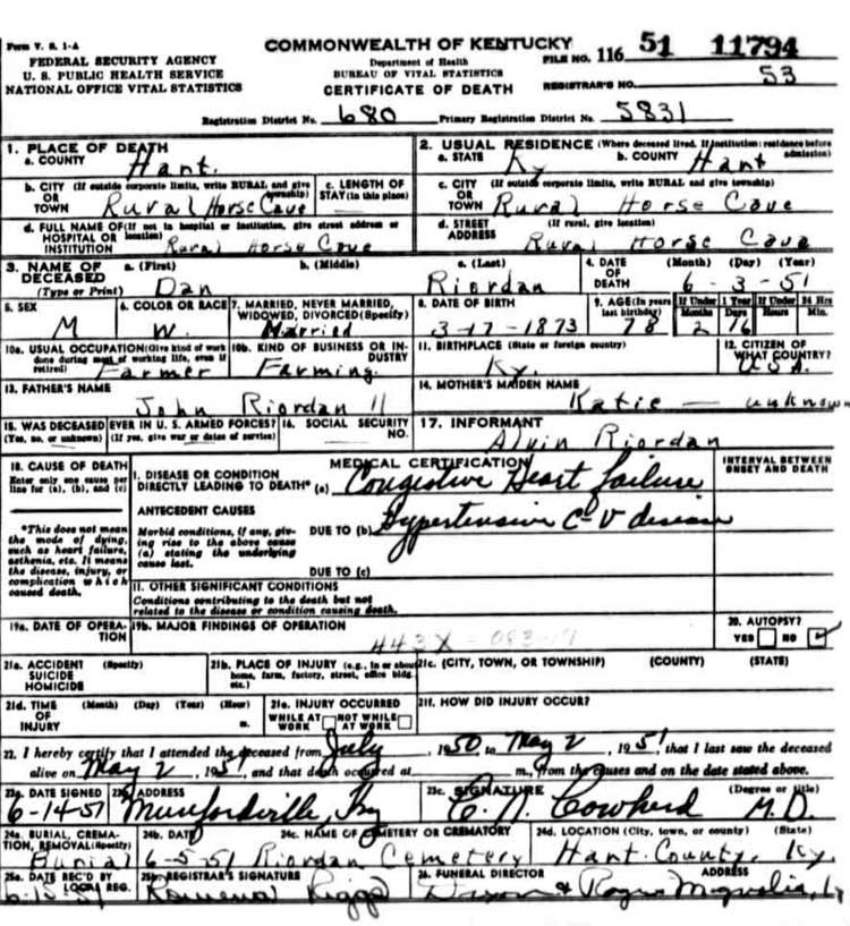 Form V. S. 1-A
FEDERAL SECURITY AGENCY
U. S. PUBLIC HEALTH SERVICE
NATIONAL OFFICE VITAL STATISTICS
COMMONWEALTH OF KENTUCKY
Department of Health
BUREAU OF VITAL STATISTICS
CERTIFICATE OF DEATH
FILE NO. 116 51 11794
REGISTRAR'S NO. 53
Registration District No. 680 Primary Registration District No. 5831
1. PLACE OF DEATH
a. COUNTY Hart.
2. USUAL RESIDENCE (Where deceased lived. If institution: residence before admission)
a. STATE Ky b. COUNTY Hart
b. CITY (If outside corporate limits, write RURAL and give township) OR TOWN Rural Horse Cave
c. LENGTH OF STAY (in this place)
c. CITY (If outside corporate limits, write RURAL and give township) OR TOWN Rural Horse Cave
d. FULL NAME OF (If not in hospital or institution, give street address or location) HOSPITAL OR INSTITUTION Rural Horse Cave
d. STREET ADDRESS (If rural, give location) Rural Horse Cave
3. NAME OF DECEASED (Type or Print) a. (First) Dan b. (Middle) c. (Last) Riordan
4. DATE OF DEATH (Month) (Day) (Year) 6-3-51
5. SEX M
6. COLOR OR RACE W.
7. MARRIED, NEVER MARRIED, WIDOWED, DIVORCED (Specify) Married
8. DATE OF BIRTH 3-17-1873
9. AGE (In years last birthday) 78 If Under 1 Year Months 2 Days 16 If Under 24 Hrs Hours Min.
10a. USUAL OCCUPATION (Give kind of work done during most of working life, even if retired) Farmer
10b. KIND OF BUSINESS OR INDUSTRY Farming.
11. BIRTHPLACE (State or foreign country) Ky.
12. CITIZEN OF WHAT COUNTRY? U.S.A.
13. FATHER'S NAME John Riordan
14. MOTHER'S MAIDEN NAME Katie — unknown
15. WAS DECEASED EVER IN U. S. ARMED FORCES? (Yes, no, or unknown) (If yes, give war or dates of service)
16. SOCIAL SECURITY NO.
17. INFORMANT Alvin Riordan
18. CAUSE OF DEATH
Enter only one cause per line for (a), (b), and (c)
*This does not mean the mode of dying, such as heart failure, asthenia, etc. It means the disease, injury, or complication which caused death.
MEDICAL CERTIFICATION
INTERVAL BETWEEN ONSET AND DEATH
I. DISEASE OR CONDITION DIRECTLY LEADING TO DEATH* (a) Congestive Heart failure
ANTECEDENT CAUSES
Morbid conditions, if any, giving rise to the above cause (a) stating the underlying cause last.
DUE TO (b) Hypertensive C-V disease
DUE TO (c)
II. OTHER SIGNIFICANT CONDITIONS
Conditions contributing to the death but not related to the disease or condition causing death.
19a. DATE OF OPERATION
19b. MAJOR FINDINGS OF OPERATION
443X
20. AUTOPSY?
YES NO
21a. ACCIDENT SUICIDE HOMICIDE (Specify)
21b. PLACE OF INJURY (e.g., in or about home, farm, factory, street, office bldg. etc.)
21c. (CITY, TOWN, OR TOWNSHIP) (COUNTY) (STATE)
21d. TIME OF INJURY (Month) (Day) (Year) (Hour) m.
21e. INJURY OCCURRED WHILE AT WORK NOT WHILE AT WORK
21f. HOW DID INJURY OCCUR?
22. I hereby certify that I attended the deceased from July, 1950 to May 2, 1951, that I last saw the deceased
alive on May 2, 1951, and that death occurred at m., from the causes and on the date stated above.
23a. DATE SIGNED 6-14-51
23b. ADDRESS Munfordville, Ky
23c. SIGNATURE (Degree or title) C. N. Cowherd M.D.
24a. BURIAL, CREMATION, REMOVAL (Specify) Burial
24b. DATE 6-5-51
24c. NAME OF CEMETERY OR CREMATORY Riordan Cemetery
24d. LOCATION (City, town, or county) (State) Hart County, Ky.
25a. DATE REC'D BY LOCAL REG.
25b. REGISTRAR'S SIGNATURE
26. FUNERAL DIRECTOR ADDRESS Magnolia,